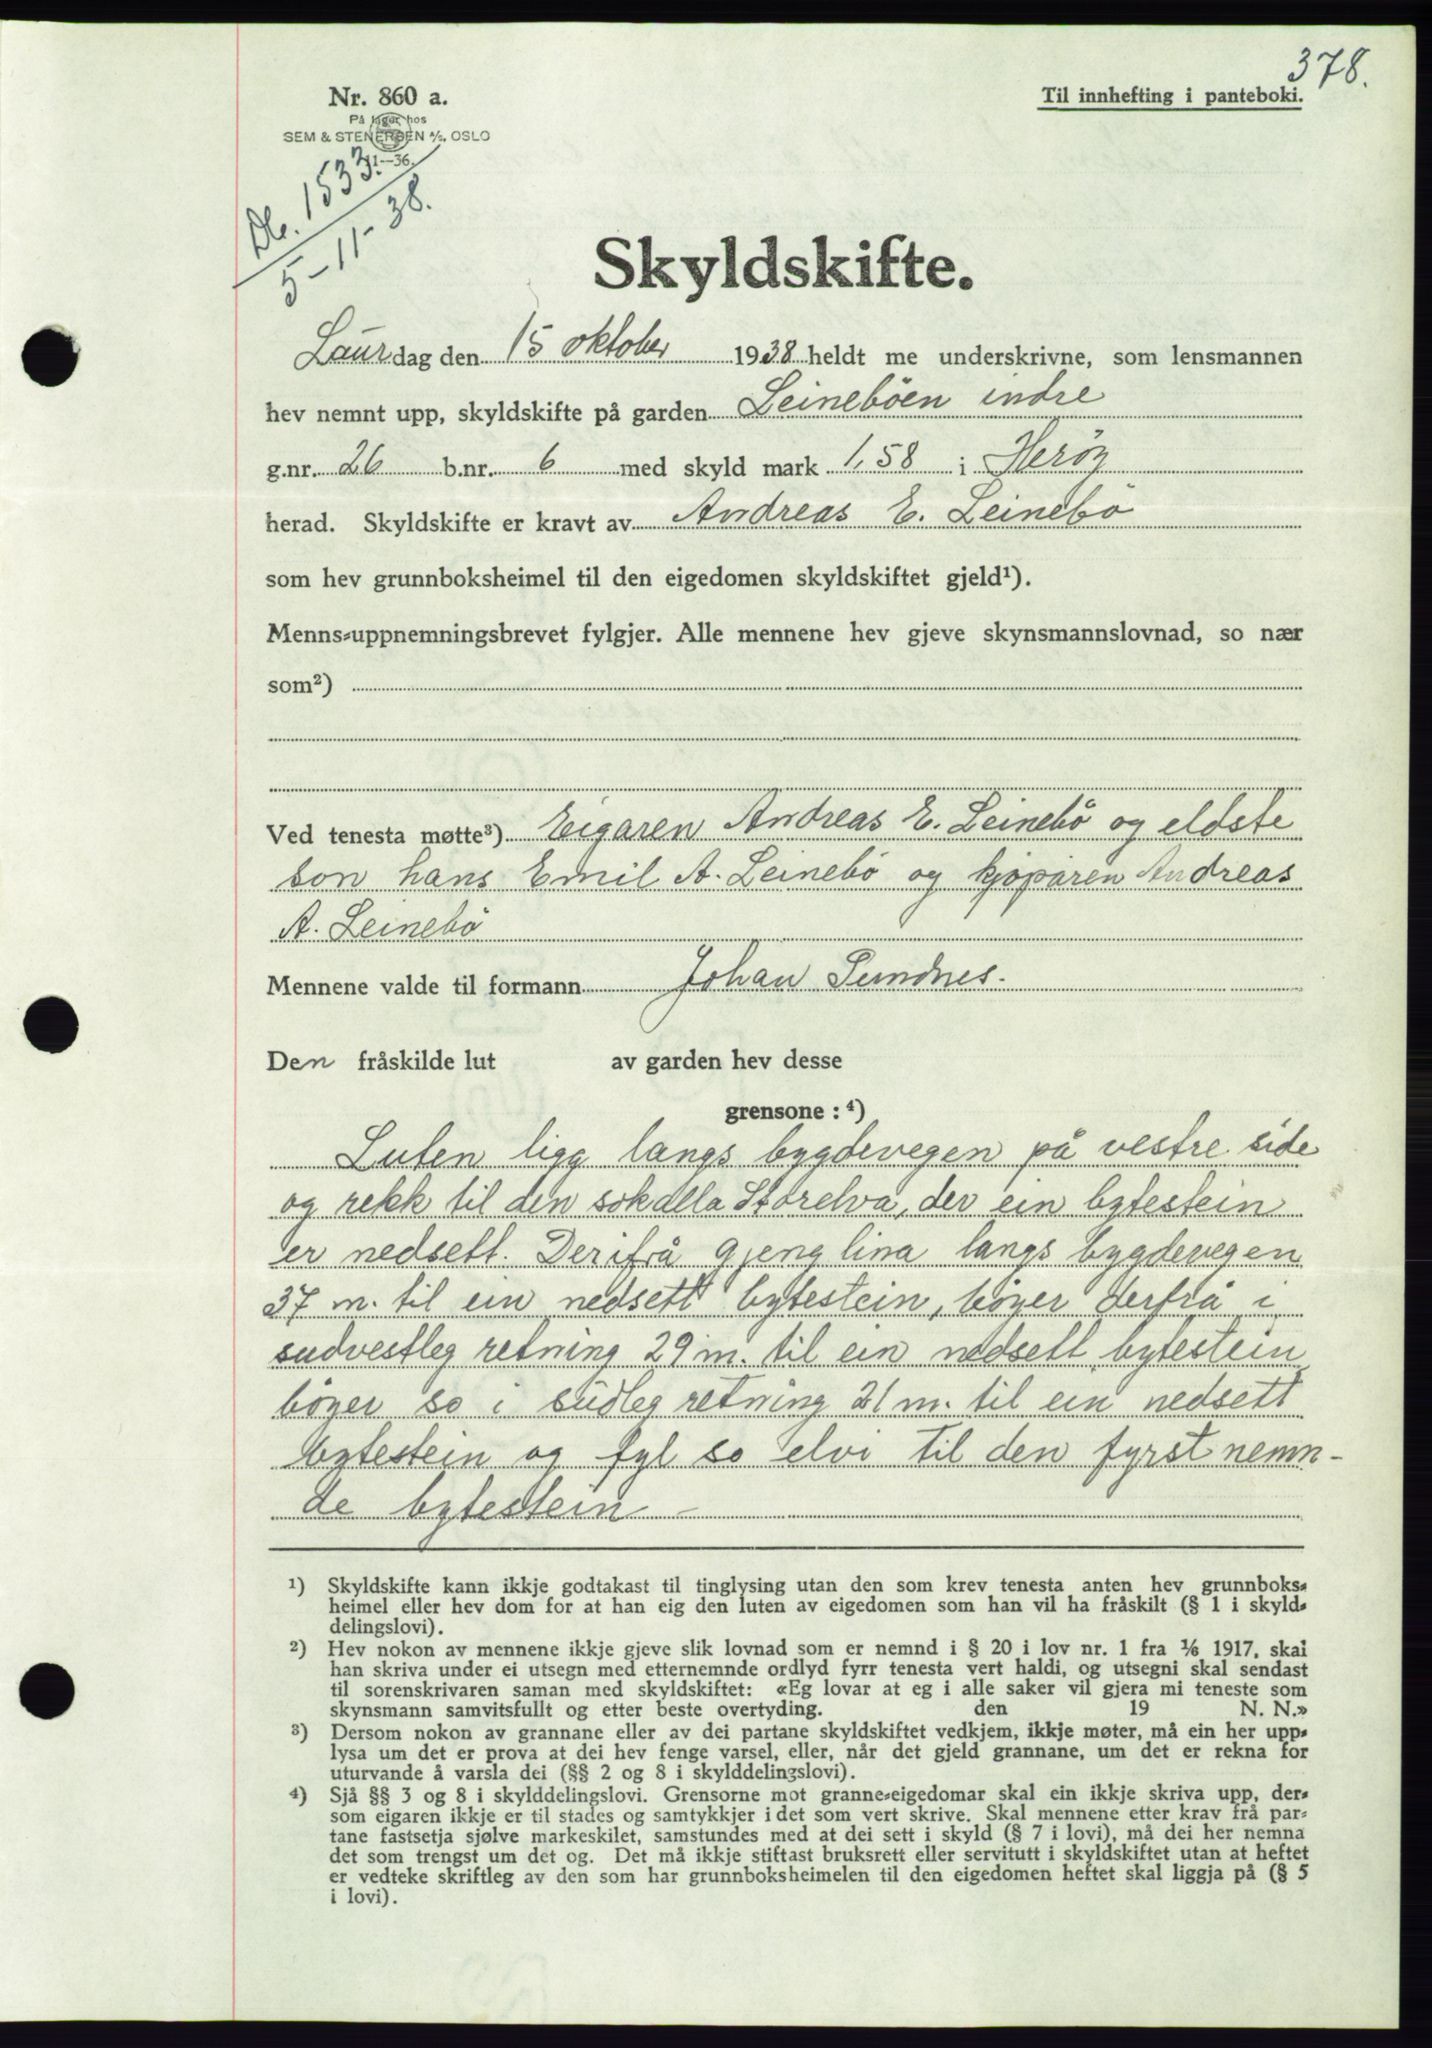 378.
Nr. 860 a.
Til innhefting i panteboki.
På lager hos
SEM & STENERSEN A/S, OSLO
11—36.
Db. 1533.
5-11-38.
Skyldskifte.
Laurdag den 15 oktober 1938 heldt me underskrivne, som lensmannen
hev nemnt upp, skyldskifte på garden Leinebøen indre
g.nr. 26 b.nr. 6 med skyld mark 1,58 i Herøy
herad. Skyldskifte er kravt av Andreas E. Leinebø
som hev grunnboksheimel til den eigedomen skyldskiftet gjeld¹).
Menns-uppnemningsbrevet fylgjer. Alle mennene hev gjeve skynsmannslovnad, so nær
som²)
Ved tenesta møtte³) Eigaren Andreas E. Leinebø og eldste
son hans Emil A. Leinebø og kjøparen Andreas
A. Leinebø
Mennene valde til formann Johan Sundnes.
Den fråskilde lut av garden hev desse
grensone : ⁴)
Luten ligg langs bygdevegen på vestre side
og rekk til den sokalla Storelva, der ein bytestein
er nedsett. Derifrå gjeng lina langs bygdevegen
37 m. til ein nedsett bytestein, bøyer derfrå i
sudvestleg retning 29 m. til ein nedsett bytestein
bøyer so i sudleg retning 21 m. til ein nedsett
bytestein og fyl so elvi til den fyrst nemn-
de bytestein —
¹) Skyldskifte kann ikkje godtakast til tinglysing utan den som krev tenesta anten hev grunnboks-
heimel eller hev dom for at han eig den luten av eigedomen som han vil ha fråskilt (§ 1 i skyld-
delingslovi).
²) Hev nokon av mennene ikkje gjeve slik lovnad som er nemnd i § 20 i lov nr. 1 fra ¹/₆ 1917, skal
han skriva under ei utsegn med etternemnde ordlyd fyrr tenesta vert haldi, og utsegni skal sendast
til sorenskrivaren saman med skyldskiftet: «Eg lovar at eg i alle saker vil gjera mi teneste som
skynsmann samvitsfullt og etter beste overtyding. den 19 N. N.»
³) Dersom nokon av grannane eller av dei partane skyldskiftet vedkjem, ikkje møter, må ein her upp-
lysa um det er prova at dei hev fenge varsel, eller, når det gjeld grannane, um det er rekna for
uturvande å varsla dei (§§ 2 og 8 i skylddelingslovi).
⁴) Sjå §§ 3 og 8 i skylddelingslovi. Grensorne mot granne-eigedomar skal ein ikkje skriva upp, der-
som eigaren ikkje er til stades og samtykkjer i det som vert skrive. Skal mennene etter krav frå par-
tane fastsetja sjølve markeskilet, samstundes med at dei sett i skyld (§ 7 i lovi), må dei her nemna
det som trengst um det og. Det må ikkje stiftast bruksrett eller servitutt i skyldskiftet utan at heftet
er vedteke skriftleg av den som har grunnboksheimelen til den eigedomen heftet skal liggja på (§ 5
i lovi).